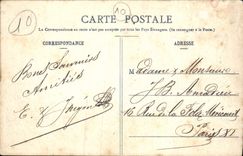 10
10
CARTE POSTALE
La Correspondance au recto n'est pas acceptée par tous les Pays Étrangers. (Se renseigner à la Poste.)
CORRESPONDANCE
ADRESSE
Bons Souvenirs
Amitiés
E.
Madame & Monsieur
J. B. Amadieu
16 Rue de la Folie Méricourt
Paris XI